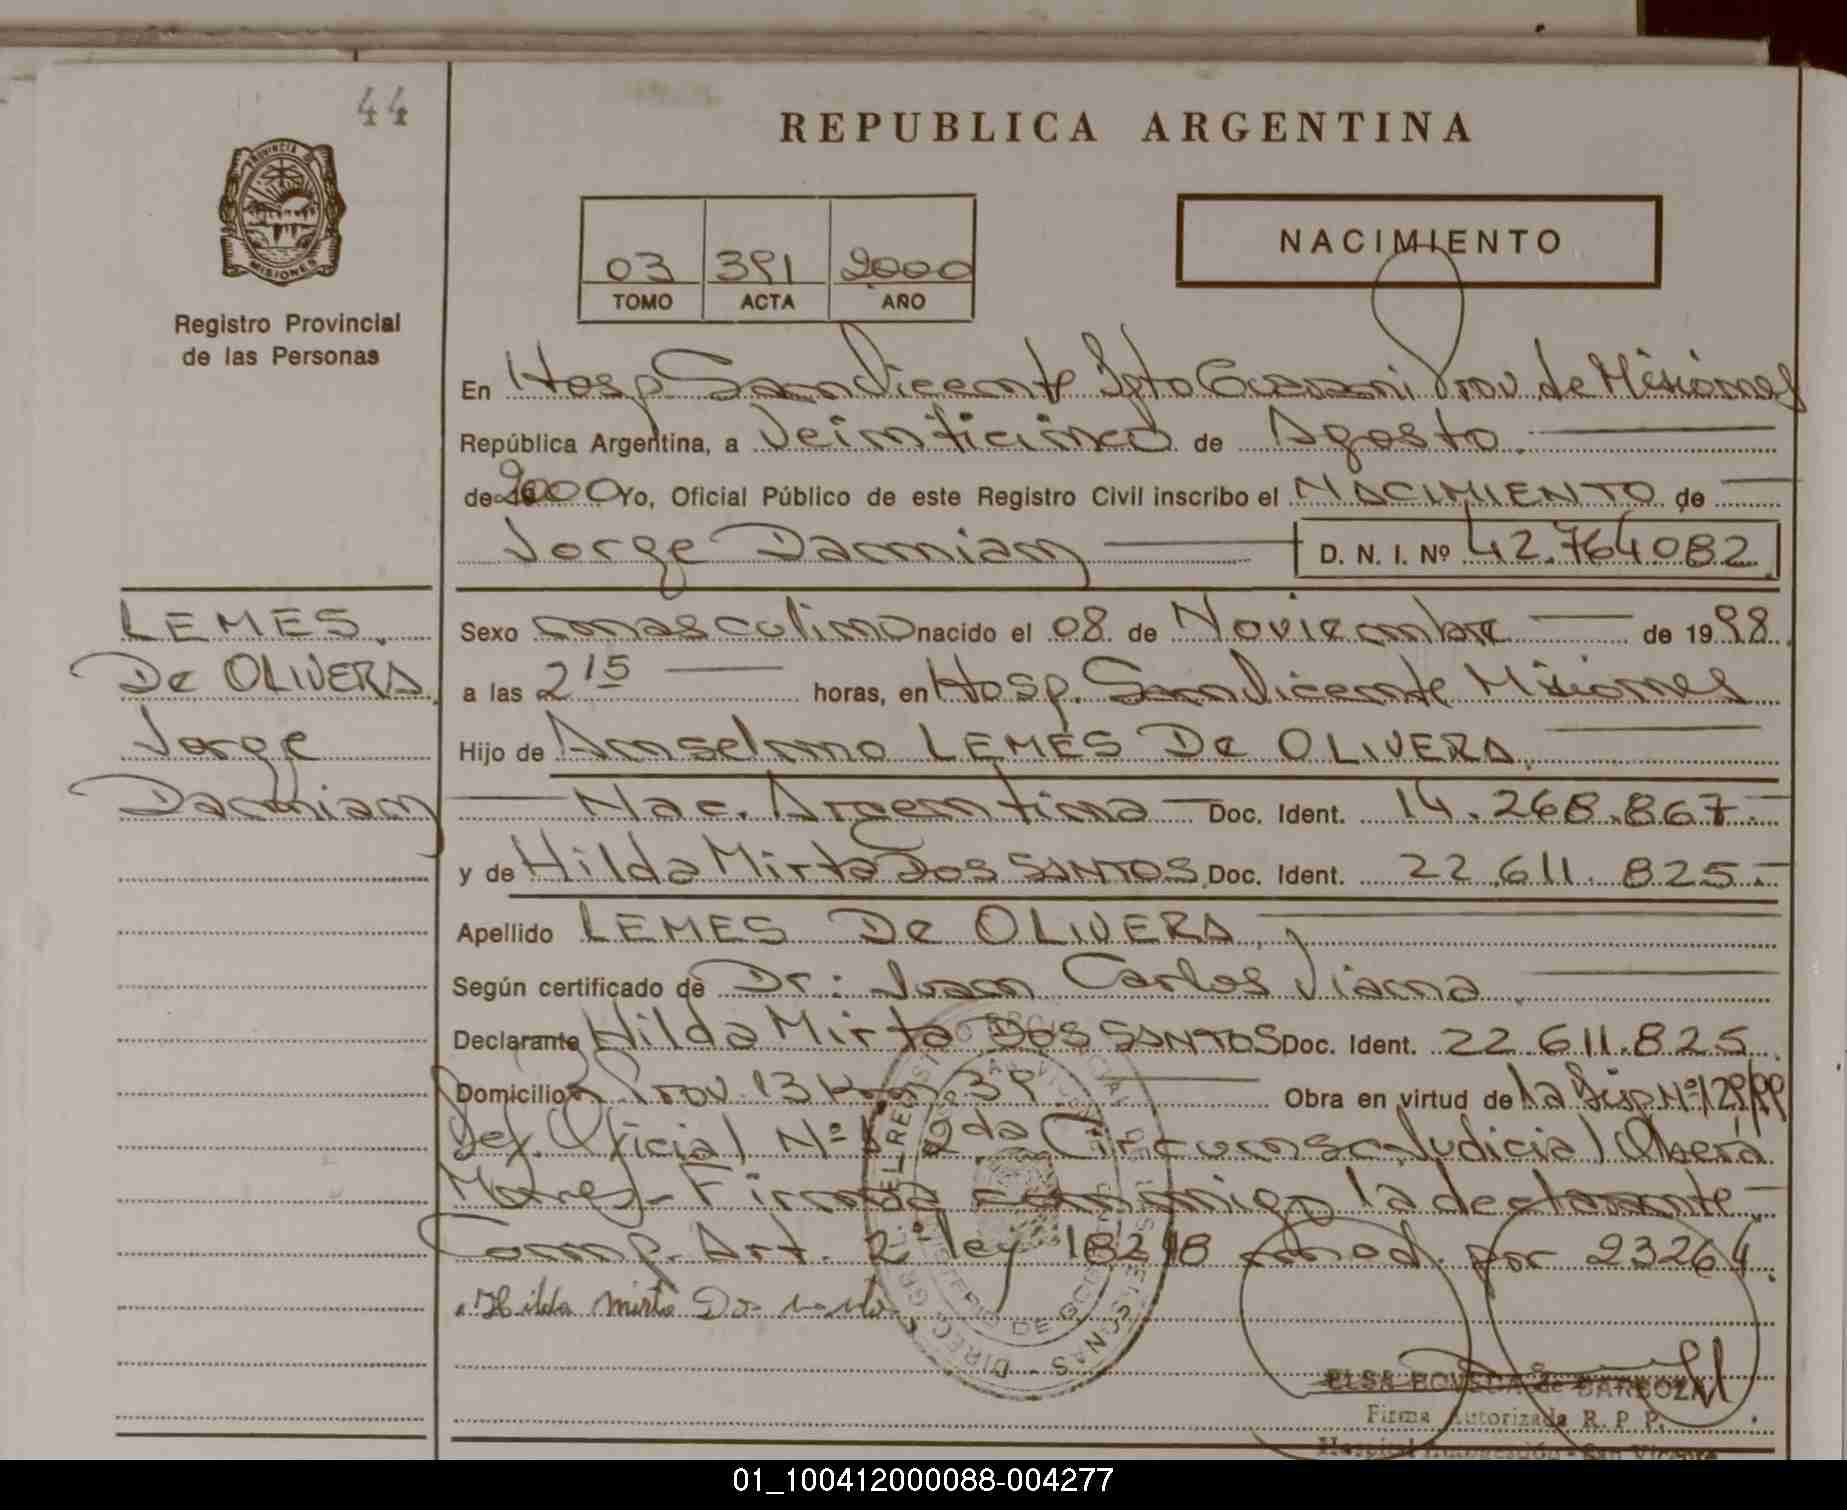 44
REPUBLICA ARGENTINA
PROVINCIA D
MISIONES
Registro Provincial
de las Personas
03 391 2000
TOMO ACTA AÑO
NACIMIENTO
En Hosp. San Vicente Dpto Guarani Prov. de Misiones
República Argentina, a Veinticinco de Agosto
de 2000 Yo, Oficial Público de este Registro Civil inscribo el NACIMIENTO de
Jorge Damian D. N. I. Nº 42.764082
LEMES
De OLIVERA
Jorge
Damian
Sexo masculino nacido el 08 de Noviembre de 1998
a las 2 15 horas, en Hosp. San Vicente Misiones
Hijo de Anselmo LEMES De OLIVERA
Nac. Argentina Doc. Ident. 14.268.867
y de Hilda Mirta Dos SANTOS Doc. Ident. 22.611.825
Apellido LEMES De OLIVERA
Según certificado de Dr: Juan Carlos Viana
Declarante Hilda Mirta Dos SANTOS Doc. Ident. 22.611.825
Domicilio Prov. 13 Km 39 Obra en virtud de la Disp. Nº 129/99
Def. Oficial Nº 1 2da Circunsc. Judicial Oberá
Mnes.- Firma conmigo la declarante
Comp. Art. 2º ley 18248 mod. por 23264.
Hilda mirta Dos
ELSA de BARBOZA
Firma Autorizada R. P. P.
San Vicente
01_100412000088-004277